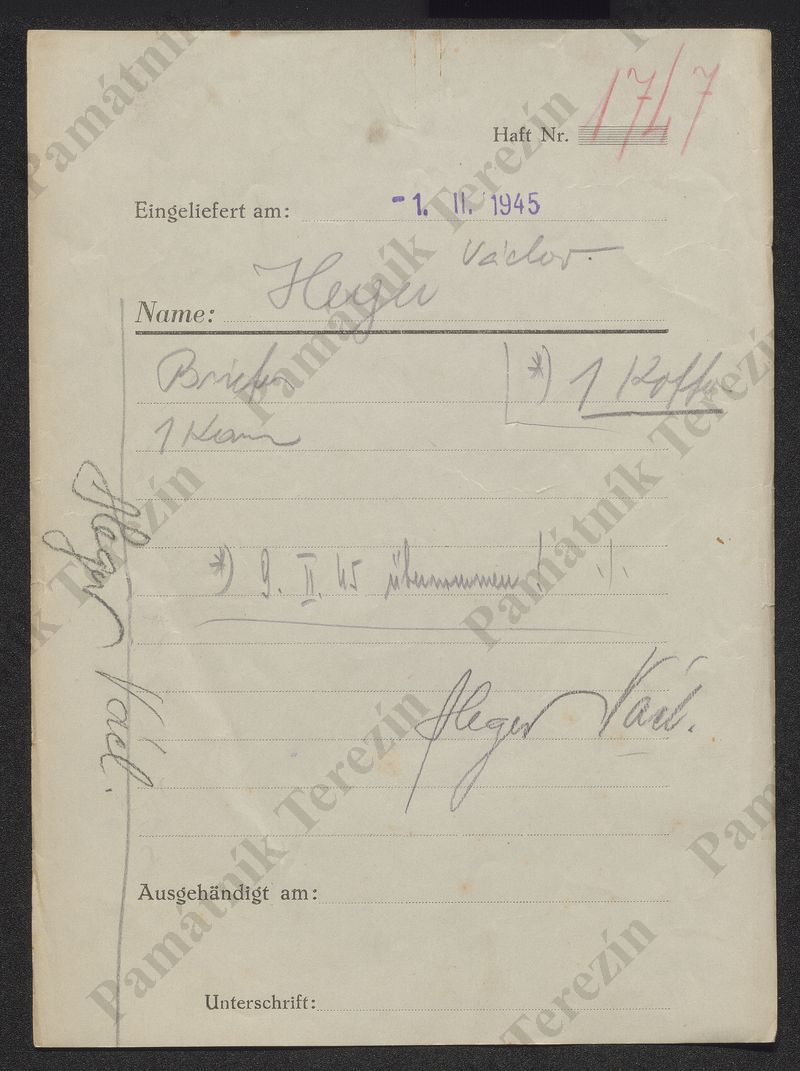 Haft Nr. 1747
Eingeliefert am: -1. II. 1945
Václav
Name: Heger
*) 1 Koffer
1 Kamm
*) 9. II. 45 übernommen!
Heger Václ.
Heger Václ.
Ausgehändigt am:
Unterschrift:
Památník Terezín